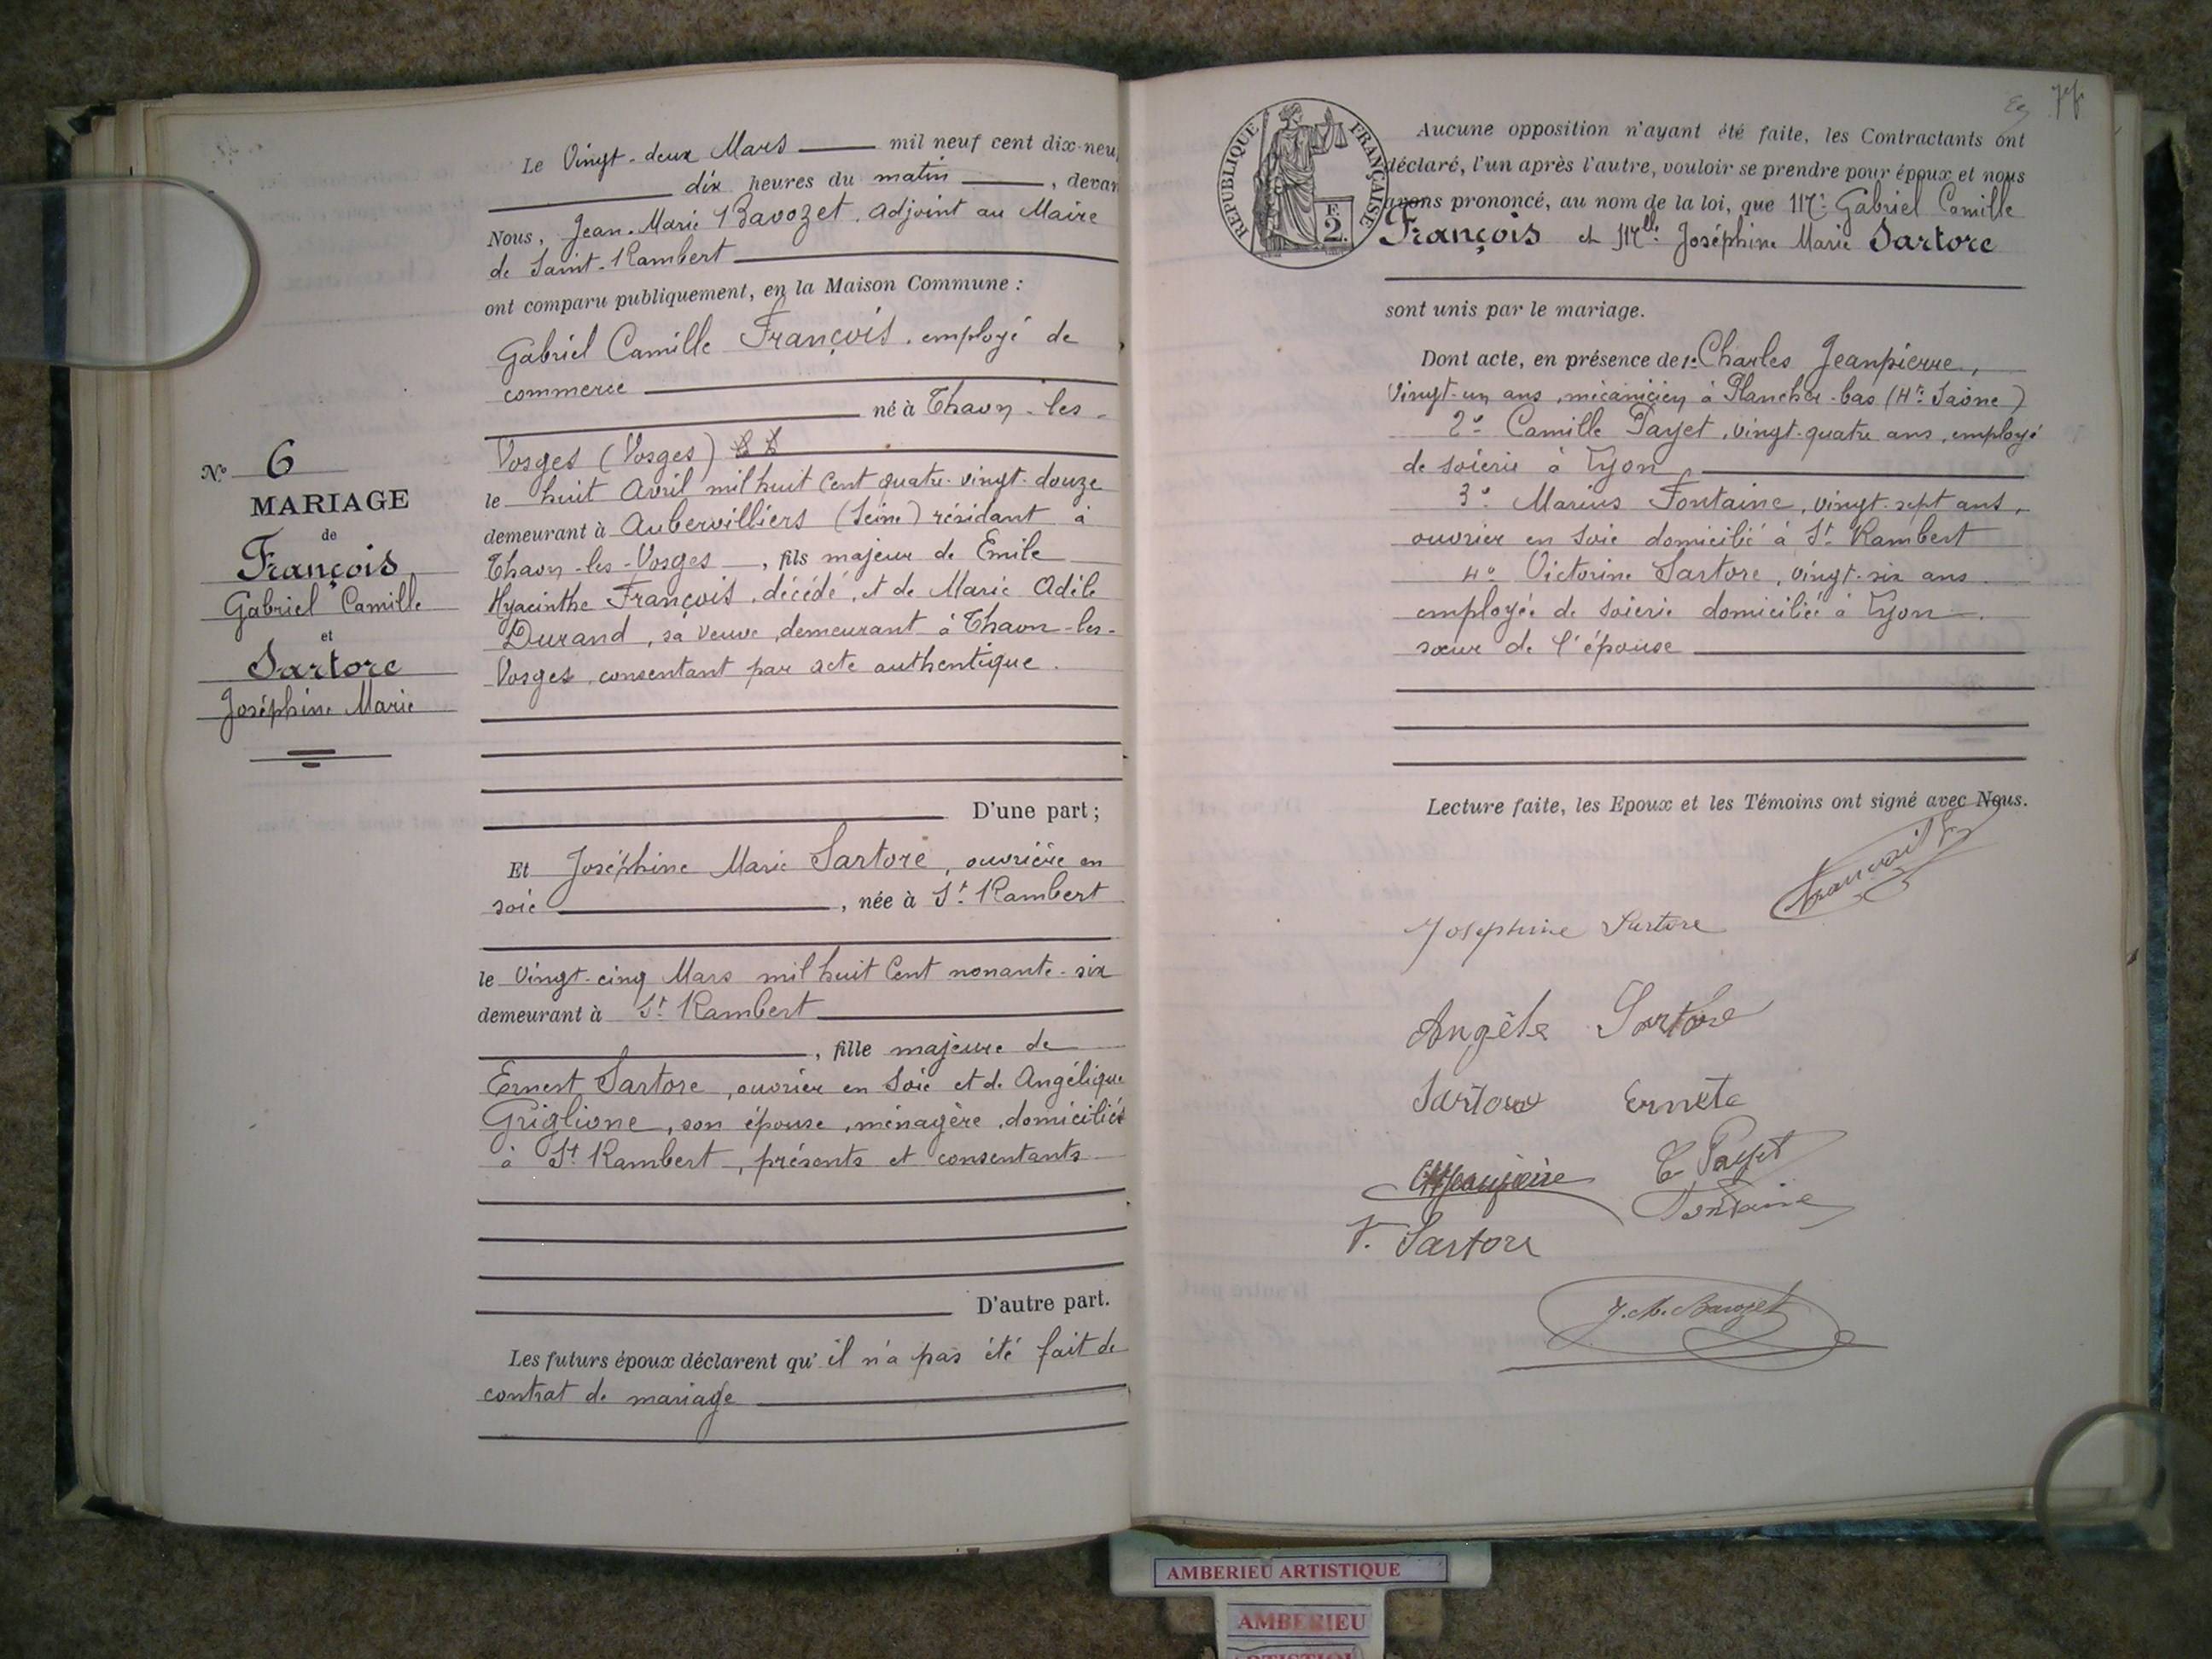 N° 6
MARIAGE
de
François
Gabriel Camille
et
Sartore
Joséphine Marie
Le Vingt-deux Mars mil neuf cent dix-neuf
dix heures du matin, devan
Nous, Jean-Marie Bavozet, adjoint au Maire
de Saint-Rambert
ont comparu publiquement, en la Maison Commune :
Gabriel Camille François, employé de
commerce
né à Thaon-les-
Vosges (Vosges)
le huit Avril mil huit Cent quatre-vingt-douze
demeurant à Aubervilliers (Seine) résidant à
Thaon-les-Vosges, fils majeur de Emile
Hyacinthe François, décédé, et de Marie Adèle
Durand, sa veuve, demeurant à Thaon-les-
Vosges, consentant par acte authentique.
D'une part ;
Et Joséphine Marie Sartore, ouvrière en
soie, née à St Rambert
le Vingt-cinq Mars mil huit Cent nonante-six
demeurant à St Rambert
, fille majeure de
Ernest Sartore, ouvrier en soie et de Angélique
Griglione, son épouse, ménagère, domiciliés
à St Rambert, présents et consentants
D'autre part.
Les futurs époux déclarent qu'il n'a pas été fait de
contrat de mariage
REPUBLIQUE FRANÇAISE
F. 2.
Aucune opposition n'ayant été faite, les Contractants ont
déclaré, l'un après l'autre, vouloir se prendre pour époux et nous
avons prononcé, au nom de la loi, que Mr Gabriel Camille
François et Mlle Joséphine Marie Sartore
sont unis par le mariage.
Dont acte, en présence de 1° Charles Jeanpierre,
vingt-un ans, mécanicien à Plancher-bas (Hte Saône)
2° Camille Payet, vingt-quatre ans, employé
de soierie à Lyon
3° Marius Fontaine, vingt-sept ans,
ouvrier en soie domicilié à St Rambert
4° Victorine Sartore, vingt-six ans
employée de soierie domiciliée à Lyon.
sœur de l'épouse
Lecture faite, les Epoux et les Témoins ont signé avec Nous.
Josephine Sartore
Angèle Sartore
Sartore Ernete
C Payet
Fontaine
V. Sartore
J. M. Bavozet
AMBERIEU ARTISTIQUE
AMBERIEU
ARTISTIQU